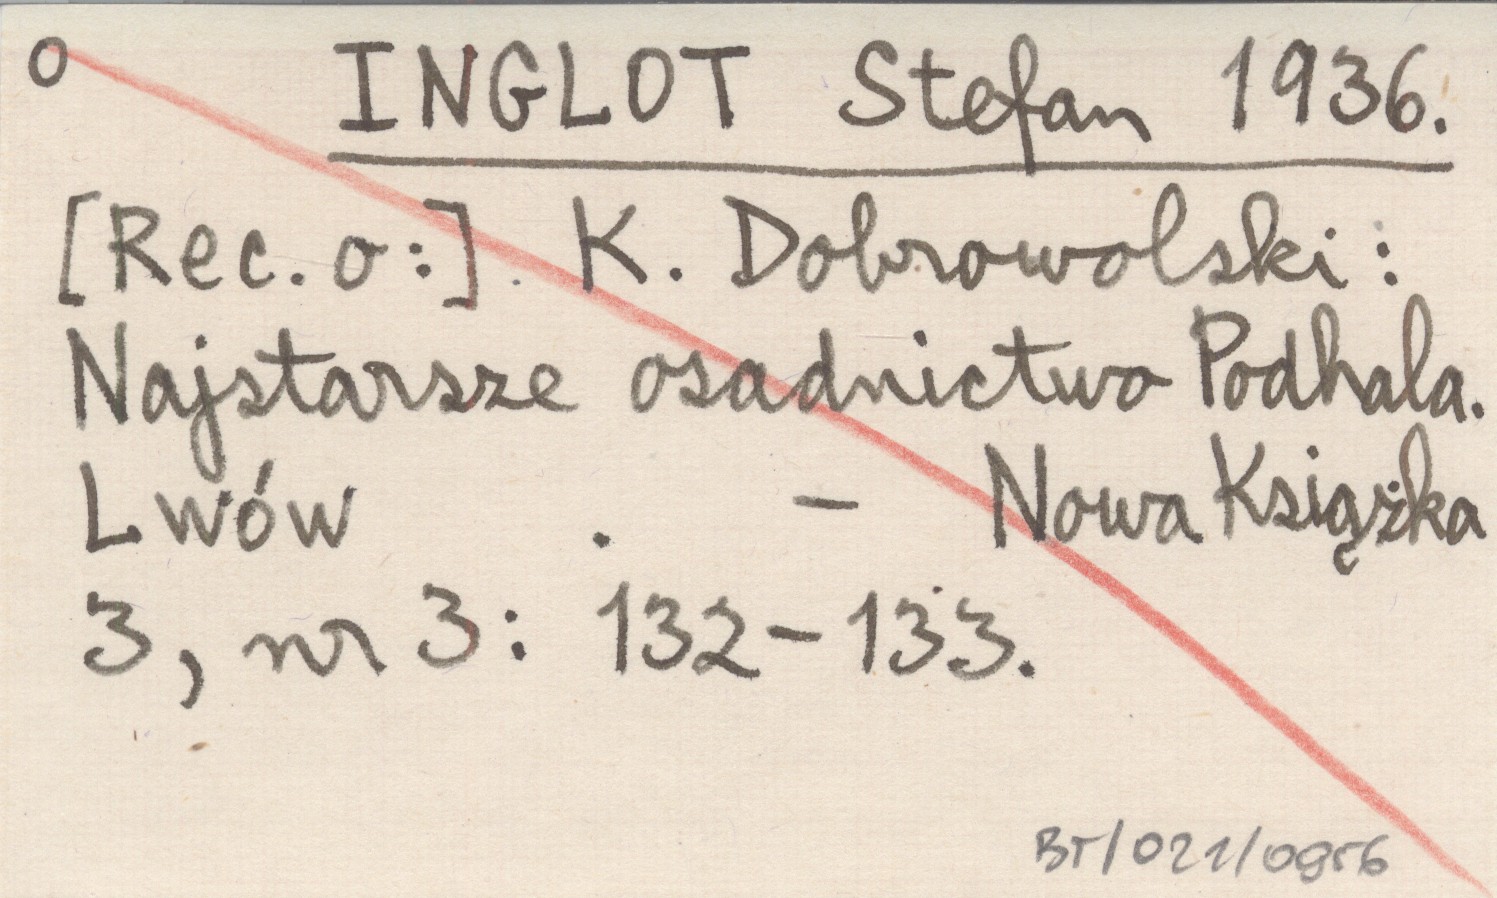 o INGLOT Stefan 1936.
[Rec. o:]. K. Dobrowolski:
Najstarsze osadnictwo Podhala.
Lwów . – Nowa Książka
3, nr 3: 132–133.
BT/021/0956